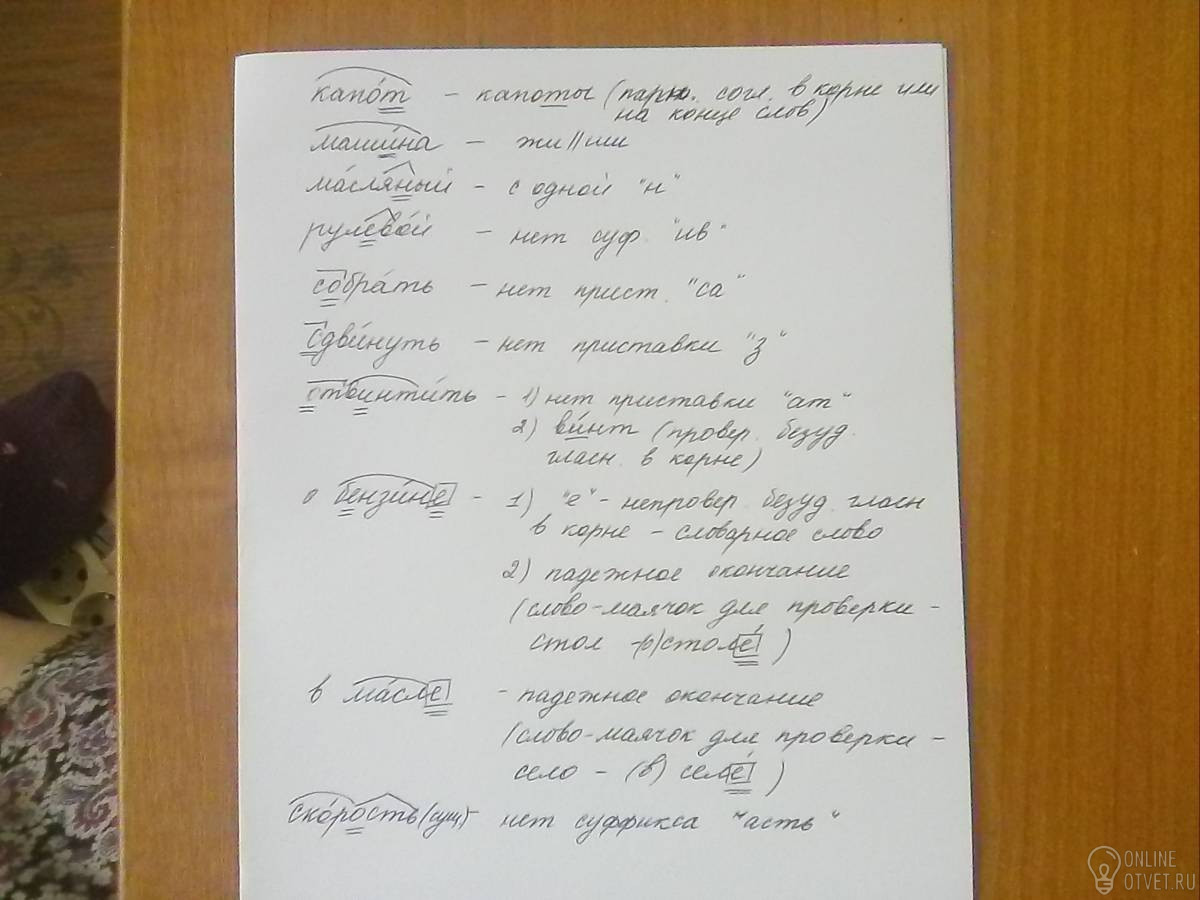 капо́т – капоты (парн. согл. в корне или
на конце слов)
маши́на – жи || ши
ма́сляный – с одной "н"
рулево́й – нет суф. "ив"
собра́ть – нет прист. "са"
сдви́нуть – нет приставки "з"
отвинти́ть – 1) нет приставки "ат"
2) ви́нт (провер. безуд.
гласн. в корне)
о бензи́не – 1) "е" – непровер. безуд. гласн
в корне – словарное слово
2) падежное окончание
(слово-маячок для проверки –
стол – (о) столе́)
в ма́сле – падежное окончание
(слово-маячок для проверки –
село – (в) селе́)
ско́рость (сущ.) – нет суффикса "асть"
ONLINE
OTVET.RU